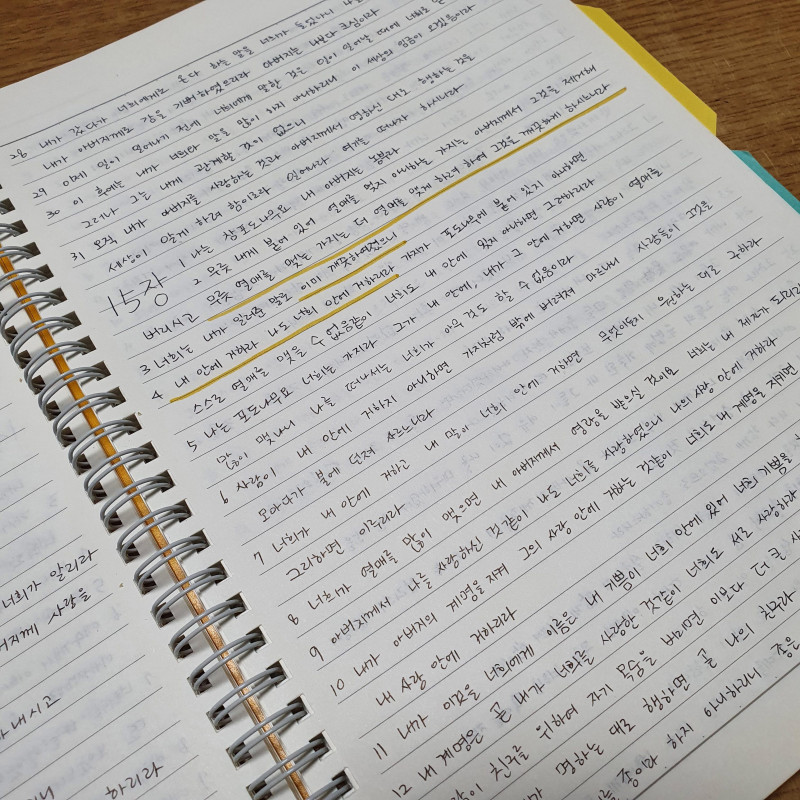 28 내가 갔다가 너희에게로 온다 하는 말을 너희가 들었나니
내가 아버지께로 감을 기뻐하였으리라 아버지는 나보다 크심이라
29 이제 일이 일어나기 전에 너희에게 말한 것은 일이 일어날 때에 너희로
30 이 후에는 내가 너희와 말을 많이 하지 아니하리니 이 세상의 임금이 오겠음이라
그러나 그는 내게 관계할 것이 없으니
31 오직 내가 아버지를 사랑하는 것과 아버지께서 명하신 대로 행하는 것을
세상이 알게 하려 함이로라 일어나라 여기를 떠나자 하시니라
15장 1 나는 참포도나무요 내 아버지는 농부라
2 무릇 내게 붙어 있어 열매를 맺지 아니하는 가지는 아버지께서 그것을 제거해
버리시고 무릇 열매를 맺는 가지는 더 열매를 맺게 하려 하여 그것을 깨끗하게 하시느니라
3 너희는 내가 일러준 말로 이미 깨끗하여졌으니
4 내 안에 거하라 나도 너희 안에 거하리라 가지가 포도나무에 붙어 있지 아니하면
스스로 열매를 맺을 수 없음같이 너희도 내 안에 있지 아니하면 그러하리라
5 나는 포도나무요 너희는 가지라 그가 내 안에, 내가 그 안에 거하면 사람이 열매를
많이 맺나니 나를 떠나서는 너희가 아무 것도 할 수 없음이라
6 사람이 내 안에 거하지 아니하면 가지처럼 밖에 버려져 마르나니 사람들이 그것을
모아다가 불에 던져 사르느니라
7 너희가 내 안에 거하고 내 말이 너희 안에 거하면 무엇이든지 원하는 대로 구하라
그리하면 이루리라
8 너희가 열매를 많이 맺으면 내 아버지께서 영광을 받으실 것이요 너희는 내 제자가 되리라
9 아버지께서 나를 사랑하신 것같이 나도 너희를 사랑하였으니 나의 사랑 안에 거하라
10 내가 아버지의 계명을 지켜 그의 사랑 안에 거하는 것같이 너희도 내 계명을 지키면
내 사랑 안에 거하리라
11 내가 이것을 너희에게 이름은 내 기쁨이 너희 안에 있어 너희 기쁨을
12 내 계명은 곧 내가 너희를 사랑한 것같이 너희도 서로 사랑하라
람이 친구를 위하여 자기 목숨을 버리면 이보다 더 큰 사
가 명하는 대로 행하면 곧 나의 친구라
는 종이라 하지 아니하리니 종은
너희가 알리라
사랑을
내시고
하리라